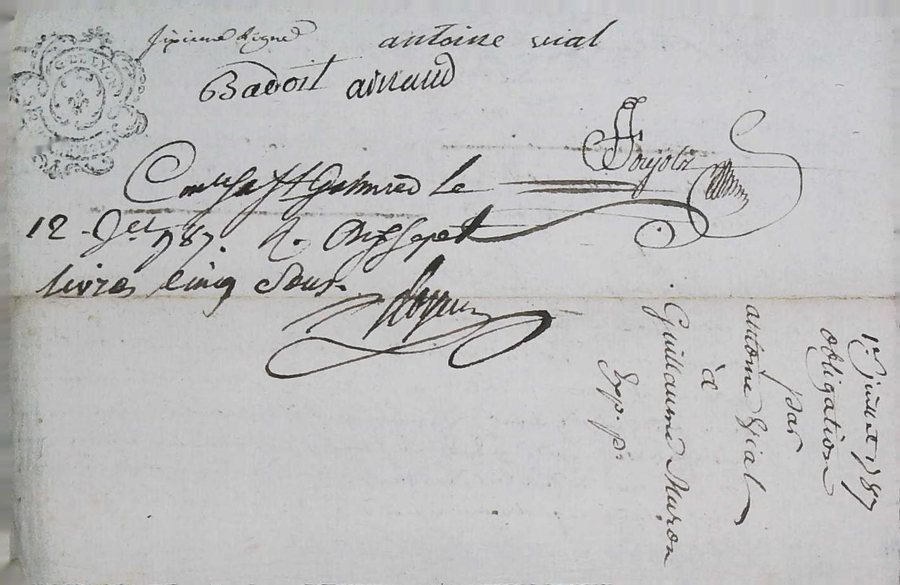 antoine vial
Badoit arnaud
Soujols
St Galmier le
12 Jet 1787. R. dix sept
livres cinq Sous
1er juillet 1787
obligation
par
antoine Vial
à
Guillaume Muron
Exp. pr